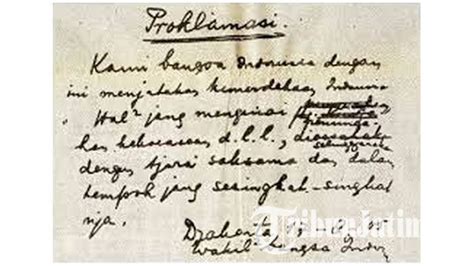 Proklamasi.
Kami bangsa Indonesia dengan
ini menjatakan kemerdekaan Indonesia
Hal² jang mengenai
kan kekoeasaan d.l.l., dioesahakan
diselenggarakan
dengan tjara saksama dan dalam
tempoh jang sesingkat-singkat
nja.
Djakarta 17-8-05
Wakil bangsa Indon
TribunJatim